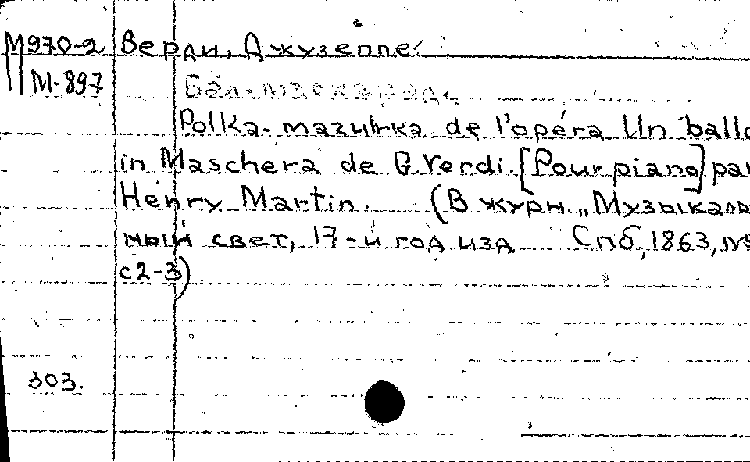 М970-2 Верди, Джузеппе.
М-897
Бал-маскарад.
Polka-mazurka de l'opéra Un ballo
in Maschera de G. Verdi. [Pour piano] par
Henry Martin. (В журн. „Музыкаль-
ный свет, 17-й год изд Спб, 1863, №
с2-3)
303.